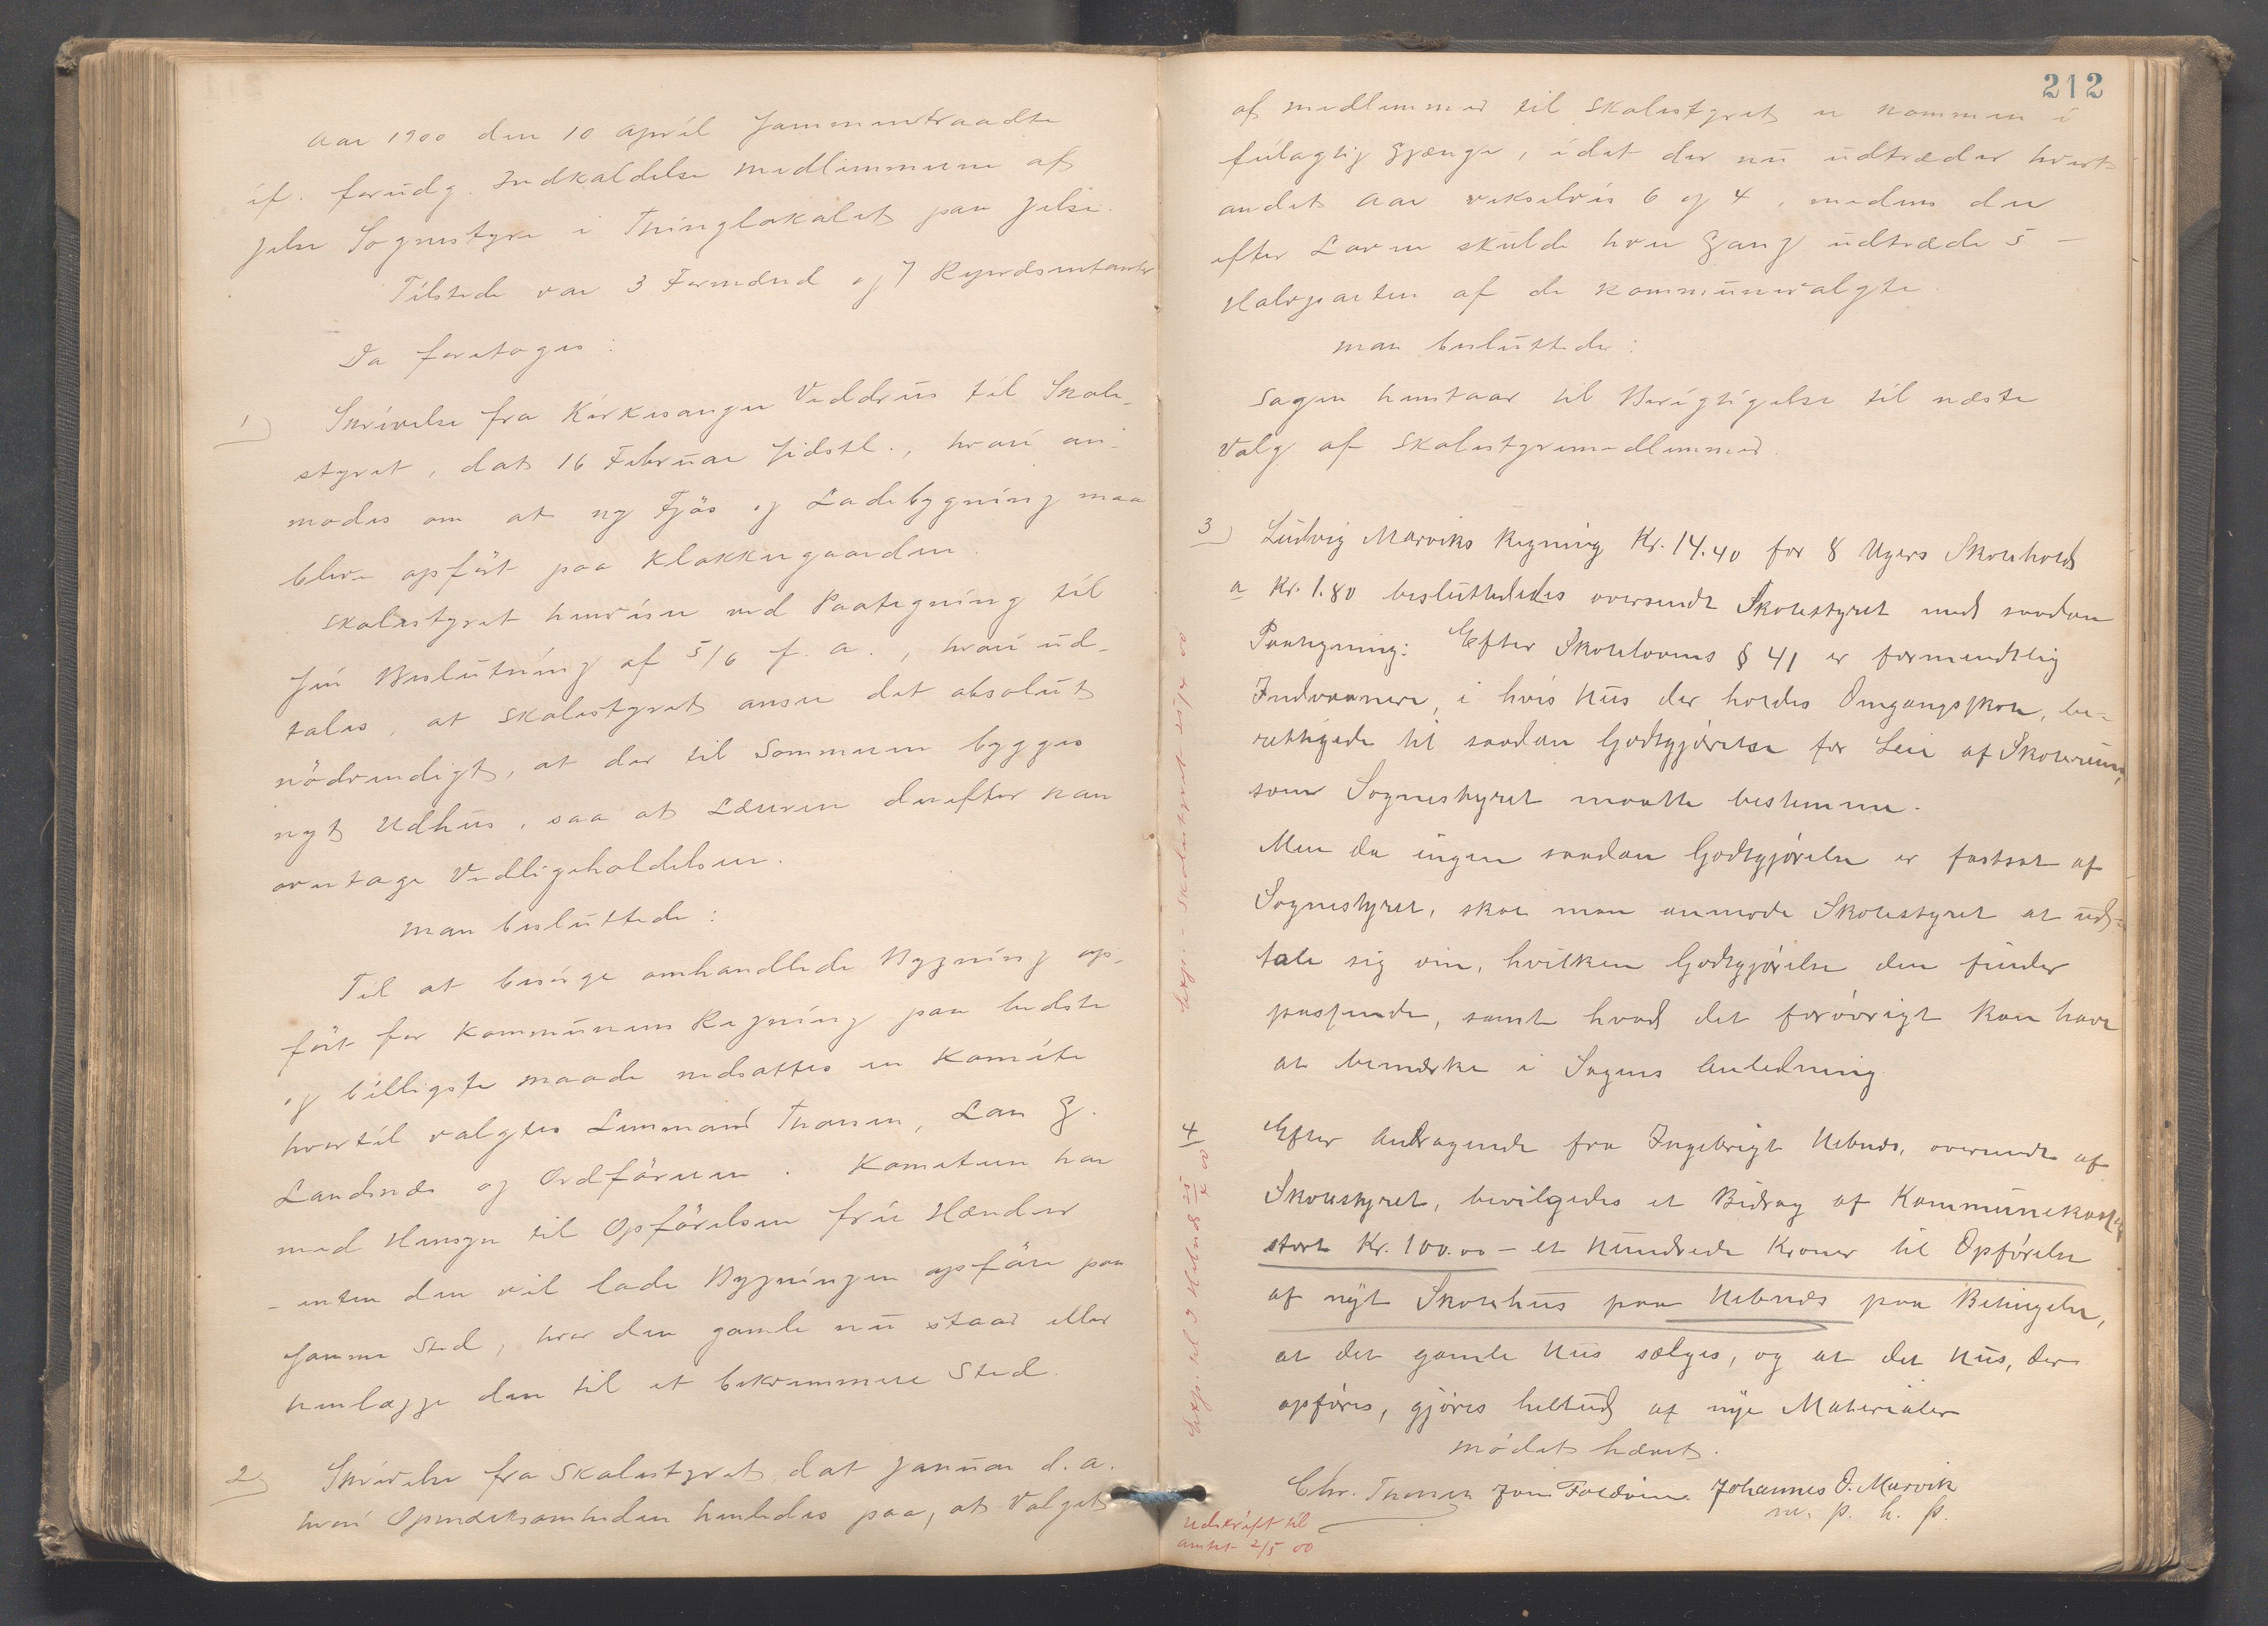 Aar 1900 den 10 April sammentraadte
if. forudg. Indkaldelse Medlemmerne af
Jelse Sognestyre i Thinglokalet paa Jelse.
Tilstede var 3 Formænd og 7 Repræsentanter
Da foretoges:
1) Skrivelse fra Kirkesanger Veddrus til Skole-
styret, dat 16 Februar sidstl., hvori an-
modes om at ny Fjös og Ladebygning maa
blive opfört paa Klokkergaarden.
Skolestyret henviser ved Paategning til
sin Beslutning af 5/6 f. a., hvori ud-
tales, at Skolestyret anser det absolut
nödvendigt, at der til Sommeren bygges
nyt Udhus, saa at Læreren derefter kan
overtage Vedligeholdelsen.
Man besluttede:
Til at besörge omhandlede Bygning op-
fört for Kommunens Regning paa bedste
og billigste Maade nedsattes en Komite
hvortil valgtes Lensmand Thorsen, Lars G.
Landsnæs og Ordföreren. Komiteen har
med Hensyn til Opförelsen frie Hænder
- enten den vil lade Bygningen opföre paa
samme Sted, hvor den gamle nu staar eller
henlægge den til et bekvemmere Sted.
2) Skrivelse fra Skolestyret dat Januar d.a.
hvori Opmerksomheden henledes paa, at Valget
212
af Medlemmer til Skolestyret er kommen i
feilagtig Gjænge, idet der nu udtræder hvert
andet Aar vekselvis 6 og 4, medens der
efter Loven skulde hver Gang udtræde 5 -
Halvparten af de kommunevalgte.
Man besluttede:
Sagen henstaar til Berigtigelse til næste
Valg af Skolestyremedlemmer.
3) Ludvig Marviks Regning Kr. 14.40 for 8 Ugers Skolehold
a Kr. 1.80 besluttedes oversendt Skolestyret med saadan
Paategning: Efter Skolelovens § 41 er formentlig
Indvaanere, i hvis Hus der holdes Omgangsskole, be-
rettigede til saadan Godtgjørelse for Leie af Skolerum,
som Sognestyret maatte bestemme.
Men da ingen saadan Godtgjørelse er fastsat af
Sognestyret, skal man anmode Skolestyret at ud-
tale sig om, hvilken Godtgjørelse den finder
passende, samt hvad det forøvrigt kan have
at bemærke i Sagens Anledning
4 Efter Andragende fra Ingebrigt Hebnes, oversendt af
Skolestyret, bevilgedes et Bidrag af Kommunekassen
stort Kr. 100.00 - et Hundrede Kroner til Opførelse
af nyt Skolehus paa Hebnes paa Betingelse,
at det gamle Hus sælges, og at det Hus, der
opføres, gjøres heltud af nye Materialer
Mödet hævet.
Chr. Thorsen Jon Foldøen. Johannes O. Marvik
m. p. h. P.
Exp. - Skolestyret 25/4 00
Exp. til I Hebnes 25/4 00
Udskrift til
amtet 2/5 00